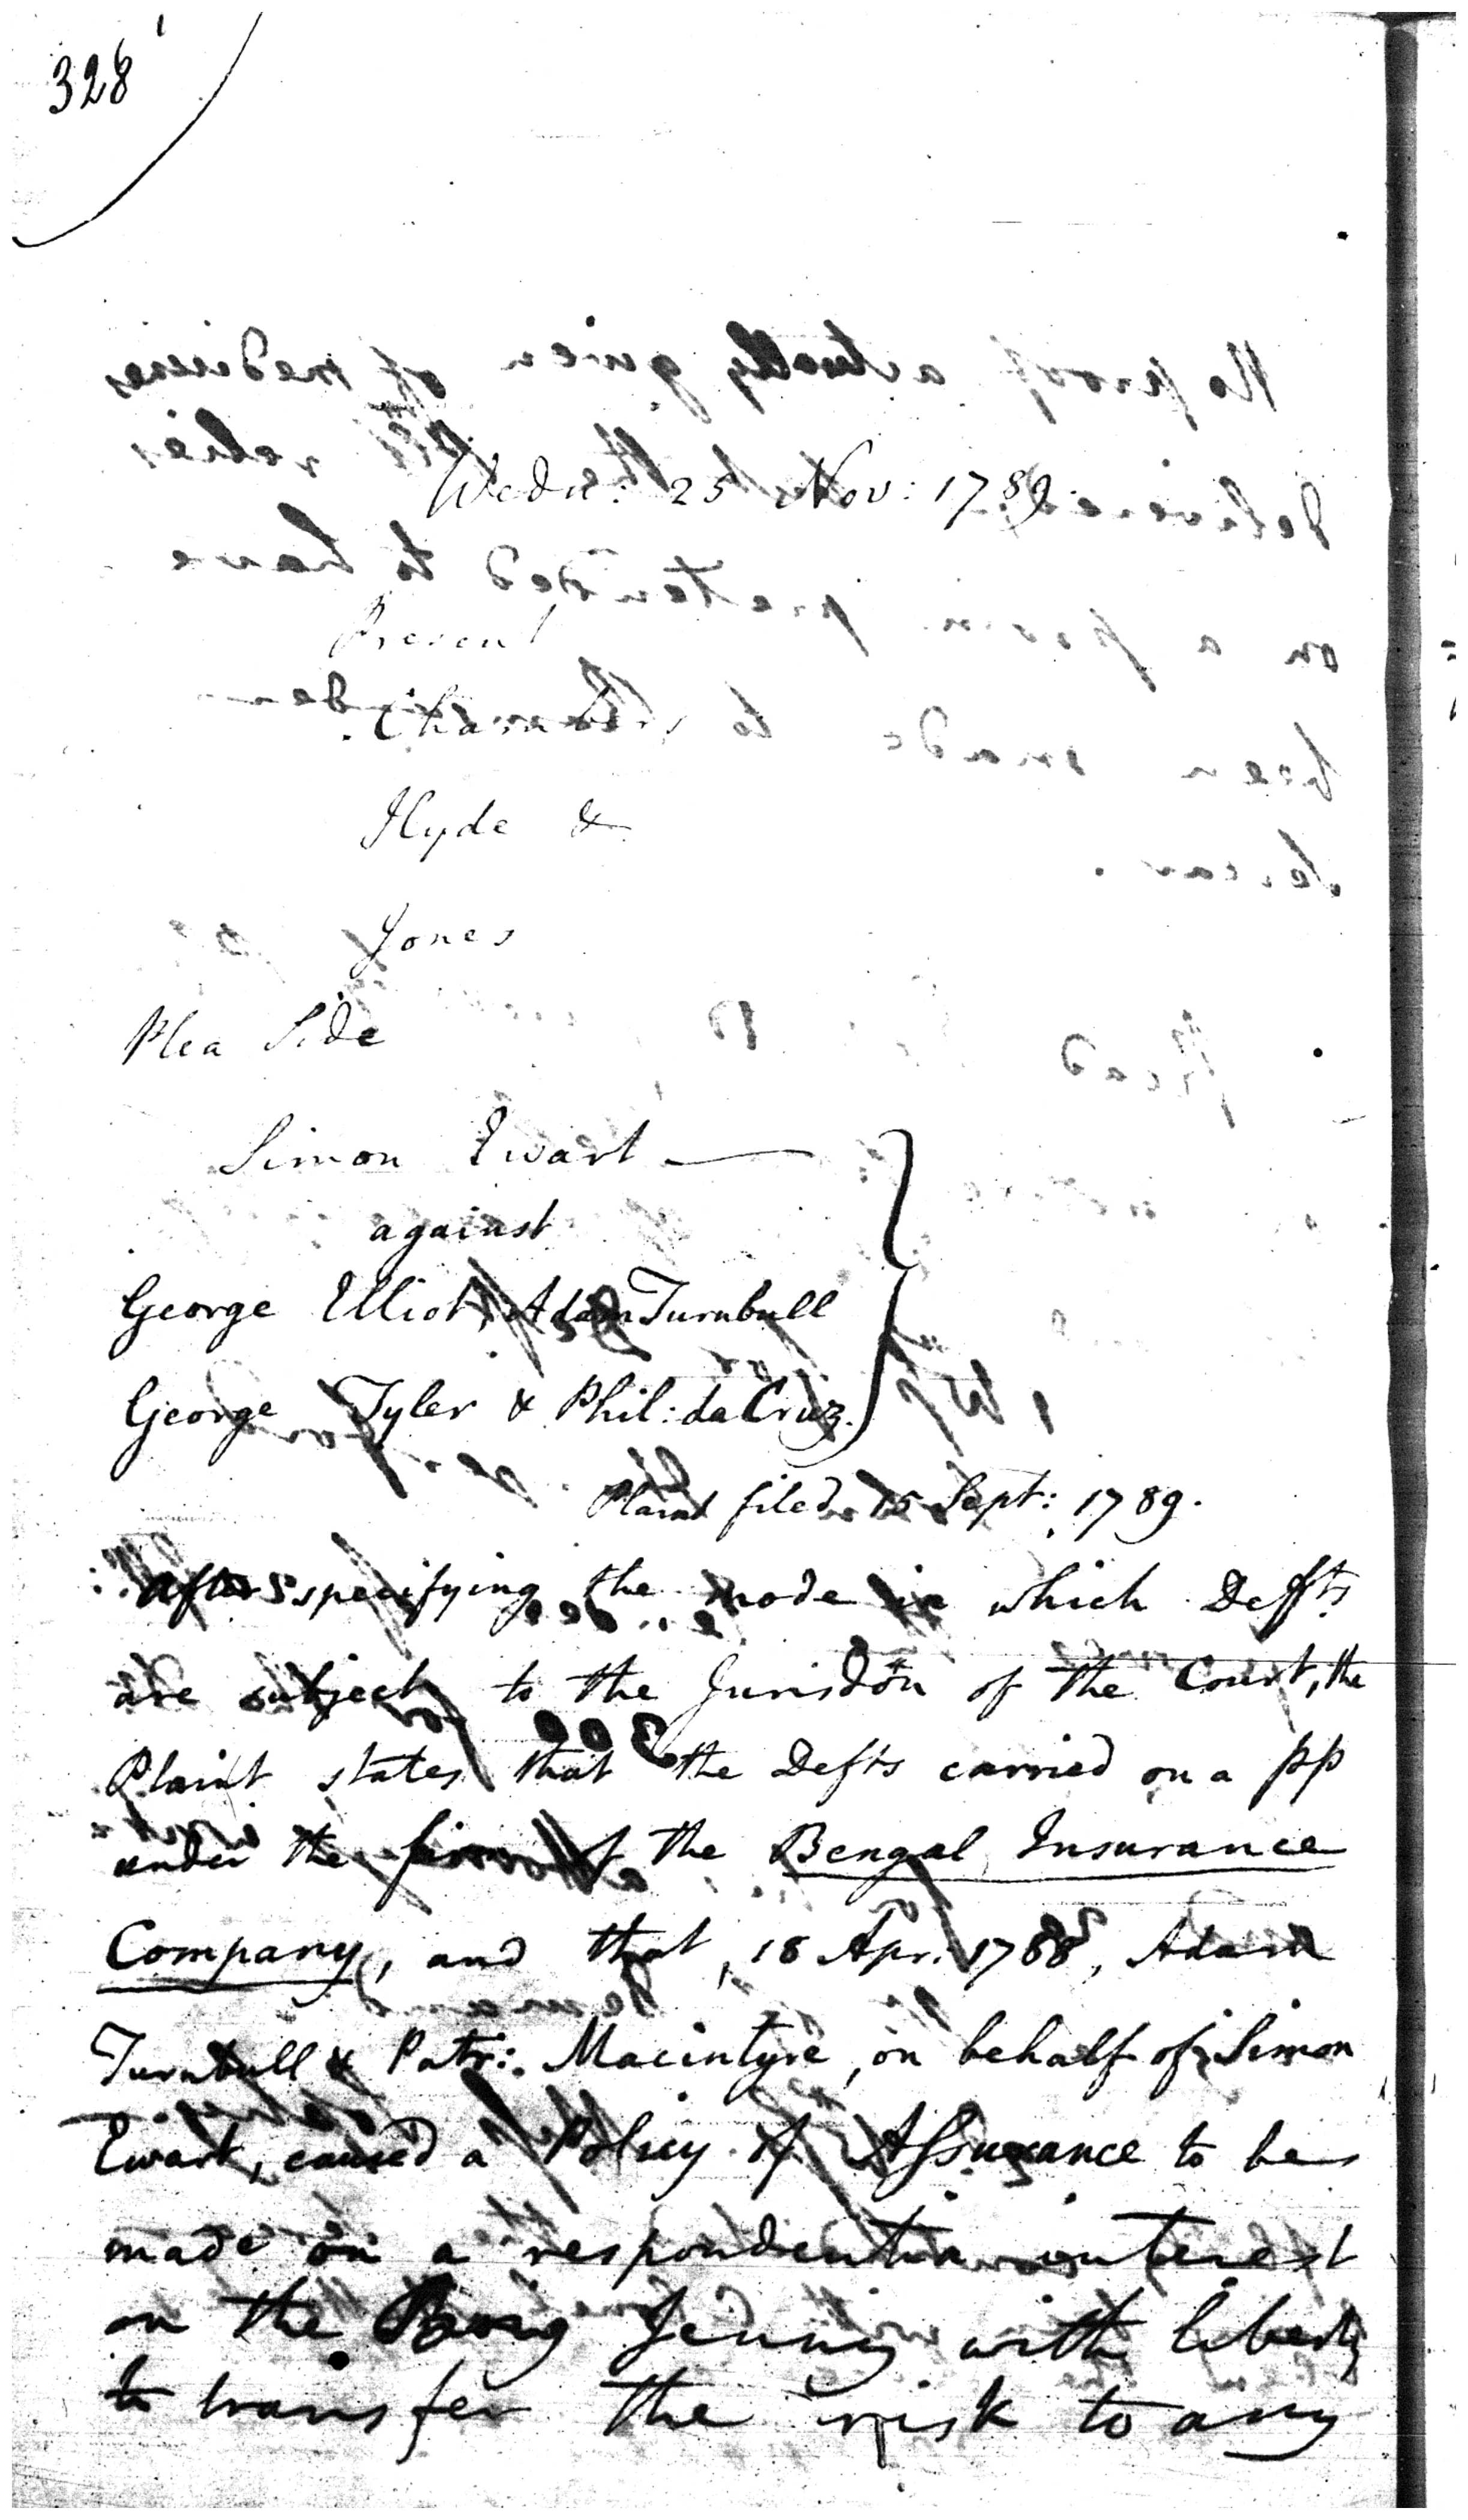 328
Wedn: 25 Nov: 1789.
Present
Chambers
Hyde &
Jones
Plea Side
Simon Ewart
against
George Elliot, Adam Turnbull
George Tyler & Phil: da Cruz.
Plaint filed 15 Sept: 1789.
After specifying the mode in which Defts
are subject to the Jurisdon of the Court, the
Plaint states that the Defts carried on a pp
under the firm of the Bengal Insurance
Company, and that, 18 Apr: 1788, Adam
Turnbull & Patr: Macintyre, on behalf of Simon
Ewart, caused a Policy of Assurance to be
made on a respondentia interest
on the Jenny with liberty
to transfer the risk to any